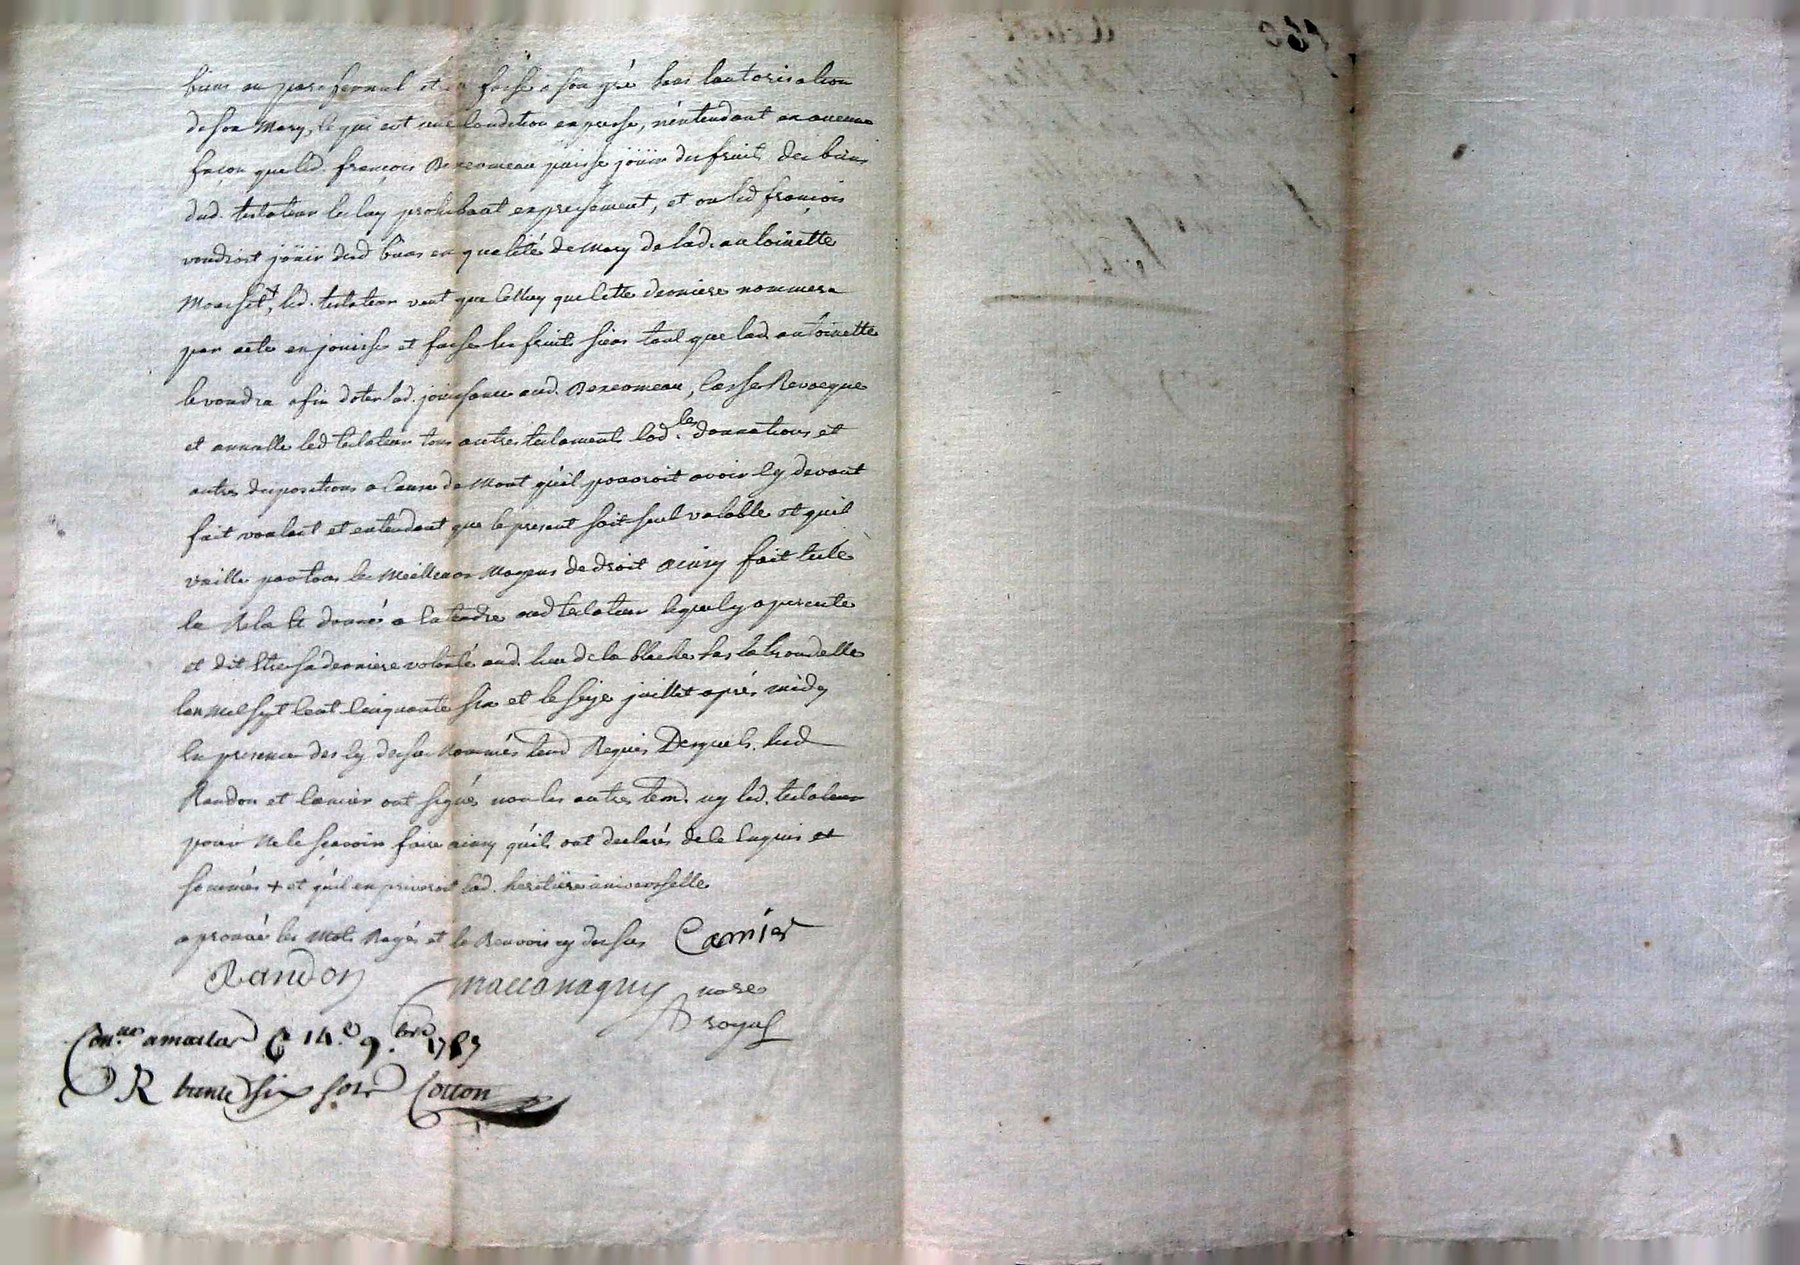 biens en parafernal et en fasse a son gré sans lautorisation
de son Mary, ce qui est une condition expresse, n'entendant en aucune
façon que led. françois Bercomeau puisse joüir des fruits des biens
dud. testateur le luy prohibant expressement, et ou led françois
voudroit joüir desd biens en qualité de Mary de lad. antoinette
led. testateur veut que celluy que cette derniere nommera
par acte en jouisse et fasse les fruits siens tant que lad. antoinette
le voudra afin doter lad. jouissance aud. Bercomeau, Casse Revocque
et annulle led testateur tous autres testaments cod.les donnations et
autres dispositions a cause de Mort qu'il pouroit avoir cy devant
fait voulant et entendant que le present soit seul valable et quil
vaille par tous les Meilleurs Moyens de droit ainsy fait testé
leu Rela et donné a entendre aud testateur lequel y a persisté
et dit etre sa derniere volonté aud. lieu de la blache
lan mil sept cent cinquante six et le seize juillet après midy
en presence des cy dessus Nommés temd Requis Desquels. led
Randon et Camier ont signés non les autres temd. ny led. testateur
pour Ne le scavoir faire ainsy qu'ils ont declarés de ce Enquis et
sommés + et qu'il en priveroit lad. heritiere universelle
aprouvé les Mots Rayés et le Renvois cy dessus Camier
Randon Maccanaguy nore
royal
Con.lle a C 14.e 9.bre
R trente six sols Cotton